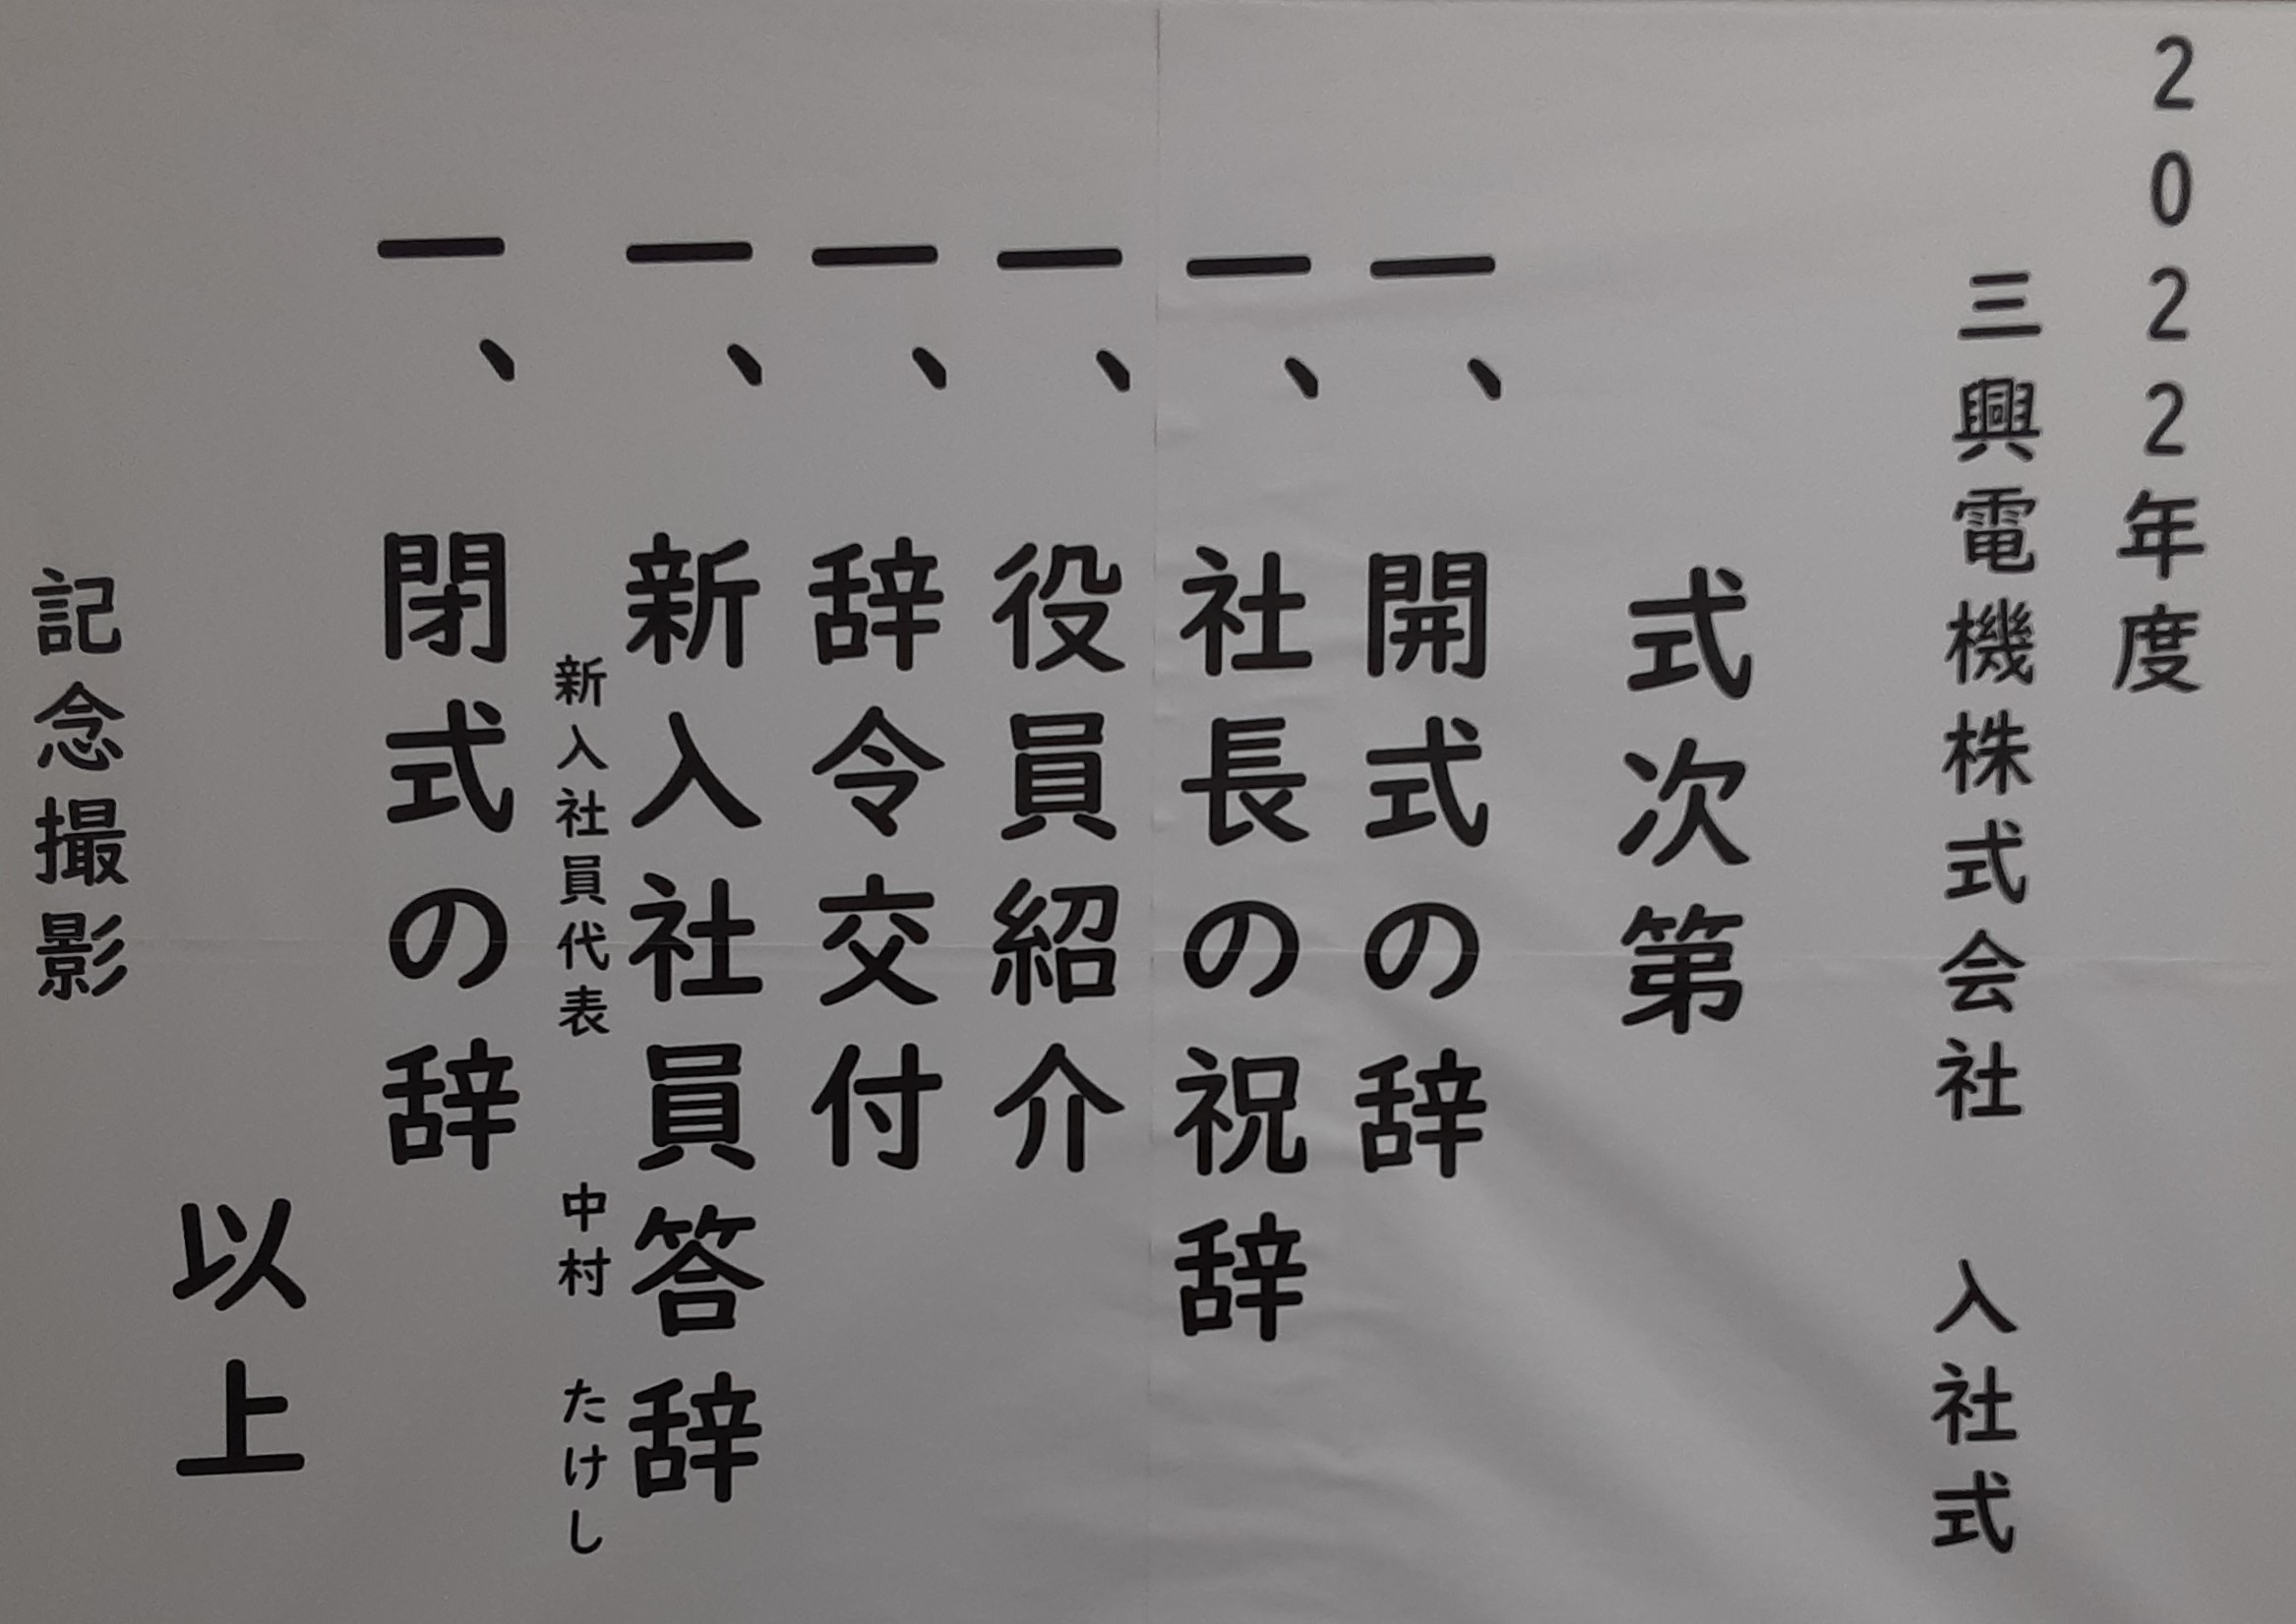 2022年度
三興電機株式会社　入社式
式次第
一、開式の辞
一、社長の祝辞
一、役員紹介
一、辞令交付
一、新入社員答辞
新入社員代表　中村　たけし
一、閉式の辞
以上
記念撮影